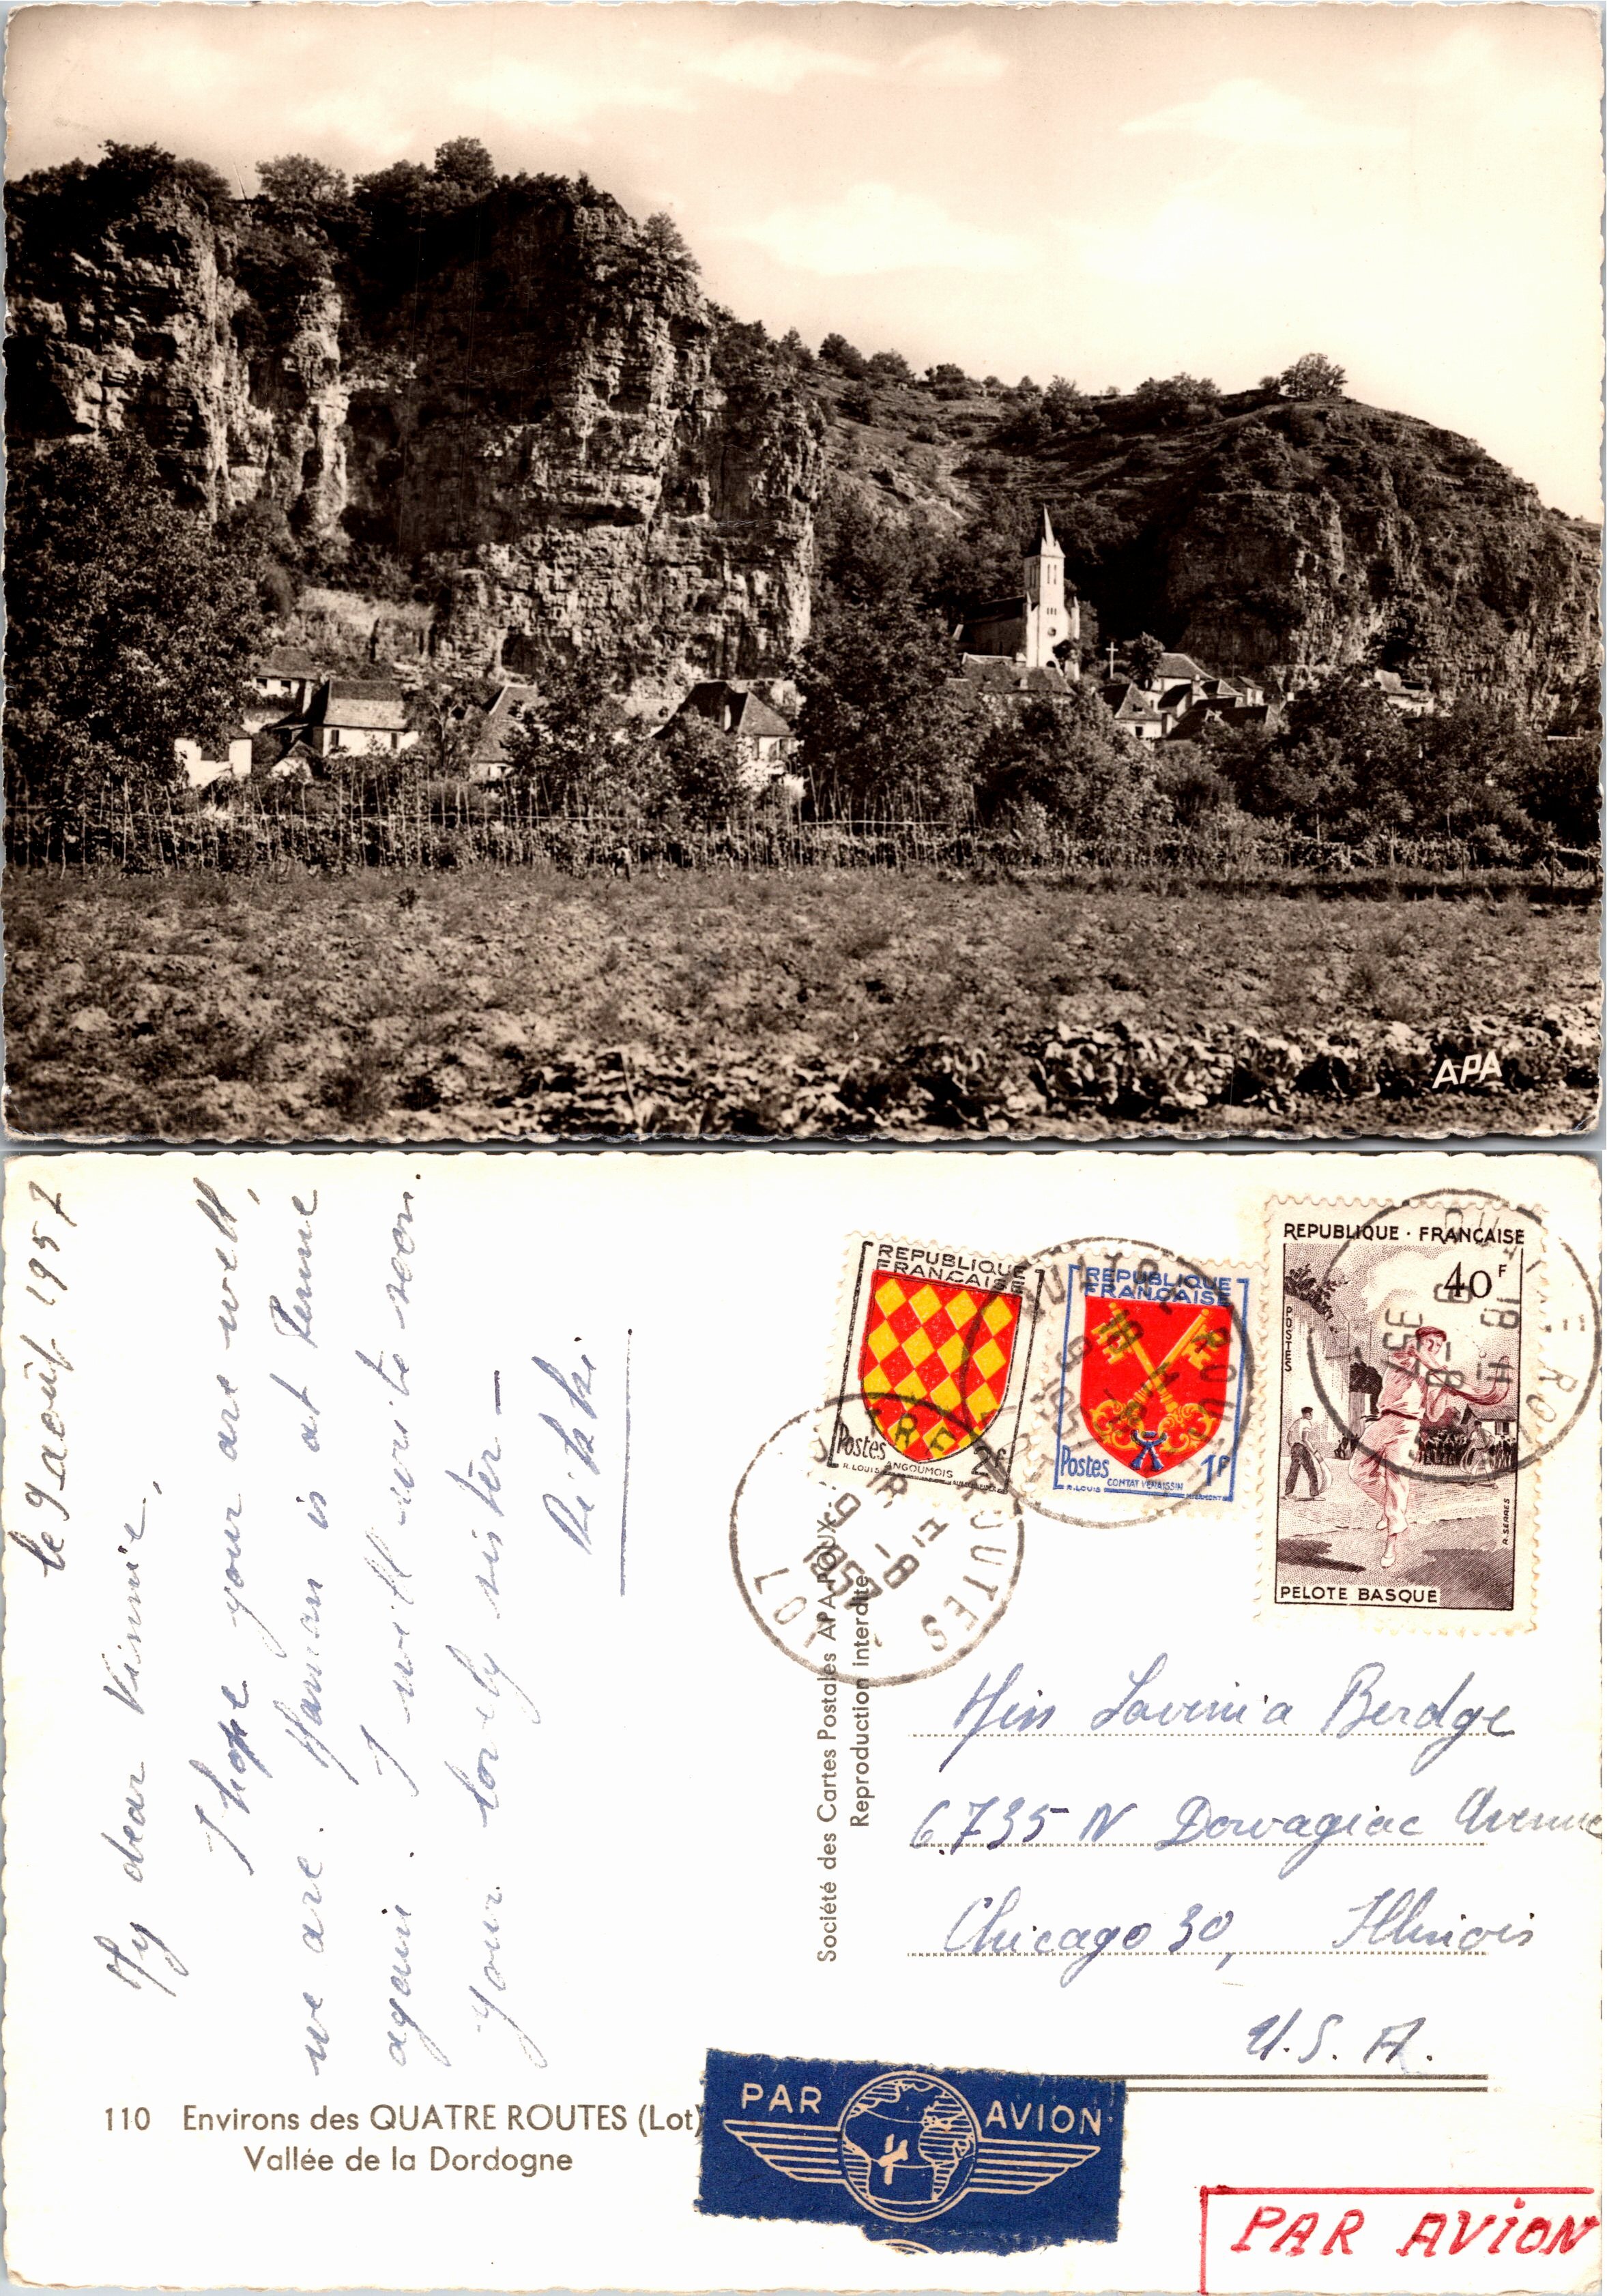 APA
le 9 août 1957
My dear Vinnie,
I hope your are well,
we are. Maman is at Reme
again. I will write soon.
Your lovely sister —
110 Environs des QUATRE ROUTES (Lot)
Vallée de la Dordogne
Société des Cartes Postales APA-POUX
Reproduction interdite
REPUBLIQUE
FRANÇAISE
Postes 2F
R. LOUIS ANGOUMOIS
REPUBLIQUE
FRANÇAISE
Postes 1F
R. LOUIS COMTAT VENAISSIN
REPUBLIQUE · FRANÇAISE
40F
POSTES
R. SERRES
PELOTE BASQUE
QUATRE ROUTES
18 H
9 - 8
1957
LOT
Miss Lavinia Berdge
6735 N Dowagiac Avenue
Chicago 30, Illinois
U.S.A.
PAR AVION
PAR AVION